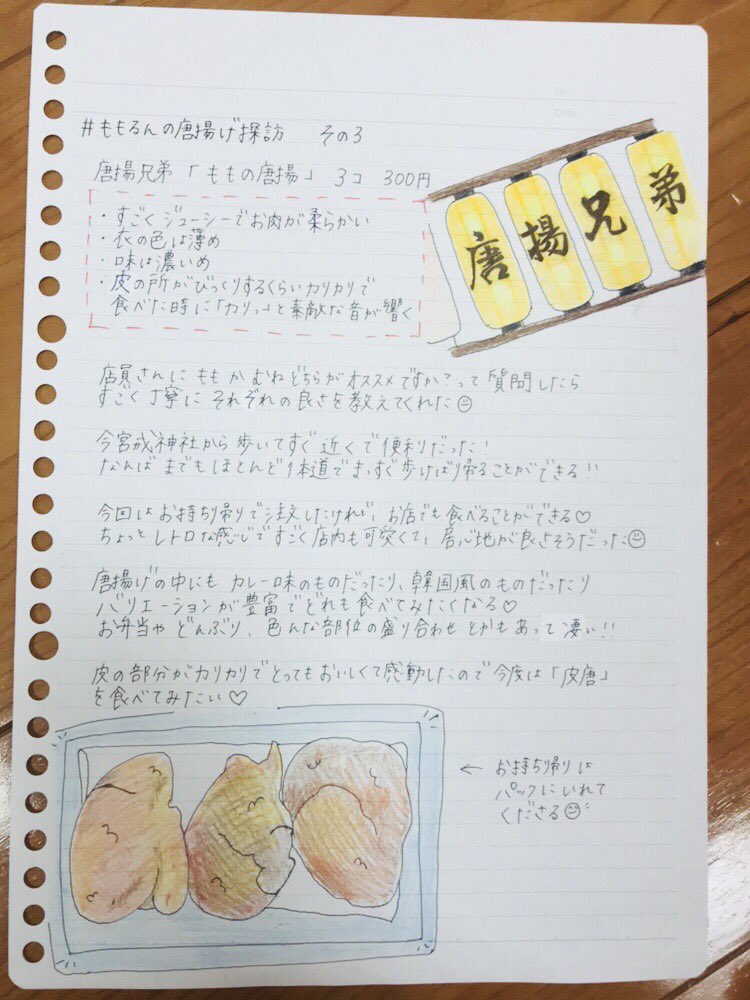 No.
Date
#ももるんの唐揚げ探訪 その3
唐揚兄弟「ももの唐揚」 3コ 300円
・すごくジューシーでお肉が柔らかい
・衣の色は薄め
・味は濃いめ
・皮の所がびっくりするくらいカリカリで
食べた時に「カリッ」と素敵な音が響く
唐揚兄弟
店員さんにももかむねどちらがオススメですか?って質問したら
すごく丁寧にそれぞれの良さを教えてくれた☺
今宮戎神社から歩いてすぐ近くで便利だった!
なんばまでもほとんど1本道でまっすぐ歩けば帰ることができる!!
今回はお持ち帰りで注文したけれど、お店でも食べることができる♡
ちょっとレトロな感じですごく店内も可愛くて、居心地が良さそうだった☺
唐揚げの中にもカレー味のものだったり、韓国風のものだったり
バリエーションが豊富でどれも食べてみたくなる♡
お弁当やどんぶり、色んな部位の盛り合わせとかもあって凄い!!
皮の部分がカリカリでとってもおいしくて感動したので今度は「皮唐」
を食べてみたい♡
← お持ち帰りは
パックにいれて
くださる☺